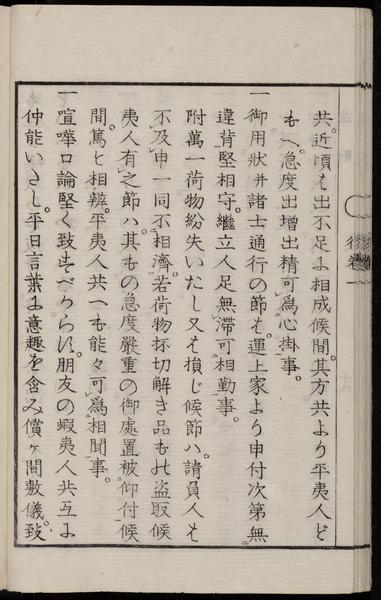 共。近頃は出不足に相成候間。其方共より平夷人ど
もへ。急度出増出精可為心掛事。
一御用状并諸士通行の節は。運上家より申付次第無
違背堅相守。継立人足無滞可相勤事。
附萬一荷物紛失いたし又は損じ候節ハ。請負人は
不及申一同不相濟。若荷物抔切解き品もの盗取候
夷人有之節ハ。其もの急度嚴重の御處置被仰付候
間。篤と相辨。平夷人共一も能々可為相聞事。
一喧嘩口論堅く致すべからず。朋友の蝦夷人共互に
仲能いたし。平日言葉に意趣を含み償ヶ間敷儀。致